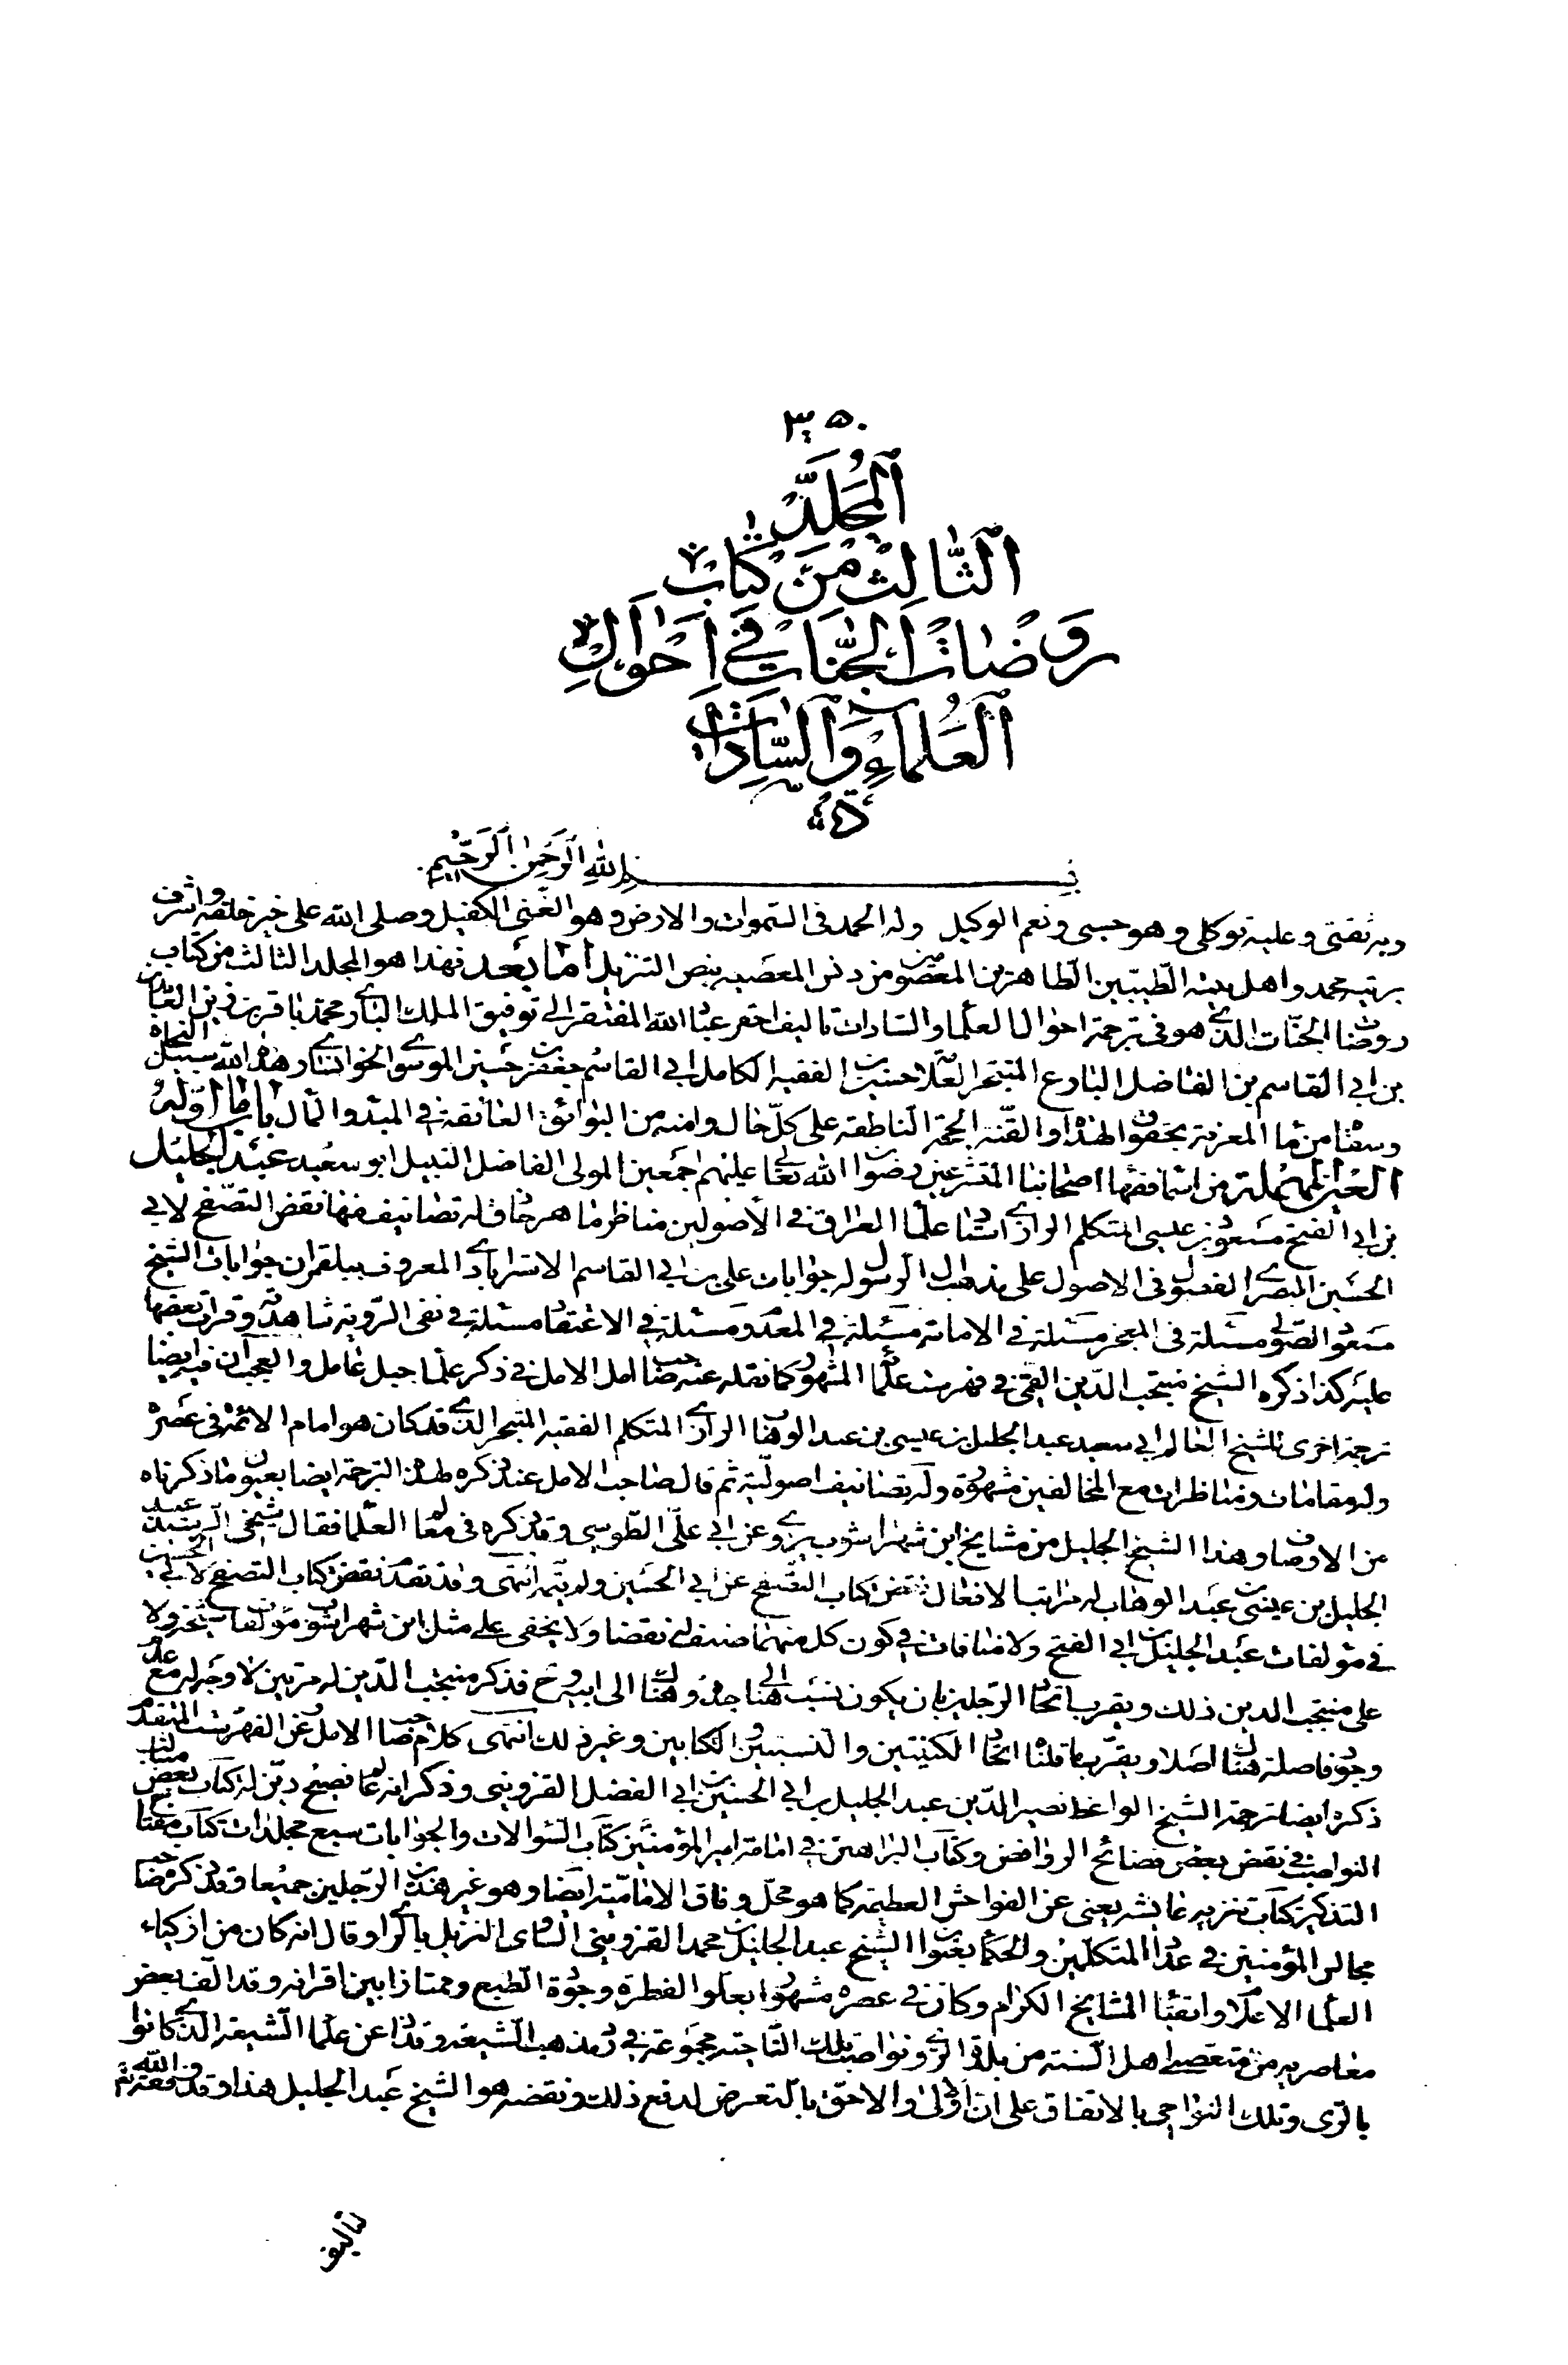 ٣٥٠
المجلد
الثالث من كتاب
روضات الجنات في احوال
العلماء والسادات
بسم الله الرحمن الرحيم
وبه ثقتي وعليه توكلي وهو حسبي ونعم الوكيل وله الحمد في السموات والارض وهو الغني الكفيل وصلى الله على خير خلقه واشرف
بريته محمد واهل بيته الطيبين الطاهرين المعصومين من دنس المعصيه بنص التنزيل اما بعد فهذا هو المجلد الثالث من كتاب
روضات الجنات الذي هو في ترجمة احوال العلماء والسادات تاليف احقر عباد الله المفتقر الى توفيق الملك الباري محمد باقر بن زين العابدين
بن ابي القاسم بن الفاضل البارع المتبحر العلامة حسين بن الفقيه الكامل ابي القاسم جعفر بن حسين الموسوي الخوانساري هداه الله سبيل النجاة
وسقنا من ماء المعرفة بحقوق الهداة والقنه الحجة الناطقة على كل حال وامنه من البوائق العائقة في المبدء والمال باب ما اوله
العين المهملة من اسماء فقهاء اصحابنا المتشرعين رضوان الله تعالى عليهم اجمعين المولى الفاضل النبيل ابو سعيد عبد الجليل
بن ابي الفتح مسعود بن عيسى المتكلم الرازي استاد علماء العراق في الأصولين مناظر ماهر حاذق له تصانيف منها نقض التصفح لابي
الحسين البصري الفصول في الاصول على مذهب ال الرسول جوابات علي بن ابي القاسم الاسترابادي المعروف ببلقمران جوابات الشيخ
مسعود الصوابي مسئلة في المعجز مسئلة في الامامة مسئلة في المعدوم مسئلة في الاعتقاد مسئلة في نفي الروية شاهدته وقرات بعضها
عليه كذا ذكره الشيخ منتجب الدين القمي في فهرست علمائه المشهور كما نقله عنه صاحب امل الامل في ذكر علماء جبل عامل والعجب ان فيه ايضا
ترجمة اخرى للشيخ العالم ابي سعيد عبد الجليل بن عيسى بن عبد الوهاب الرازي المتكلم الفقيه المتبحر الذي قد كان هو امام الائمة في عصره
وله مقامات ومناظرات مع المخالفين مشهورة وله تصانيف اصولية ثم قال صاحب الامل عند ذكره لهذه الترجمة ايضا بعنوان ما ذكرناه
من الاوصاف وهذا الشيخ الجليل من مشايخ ابن شهراشوب يروي عن ابي علي الطوسي وقد ذكره في معالم العلماء فقال شيخي الرشيد عبد
الجليل بن عيسى بن عبد الوهاب له مراتب الافعال نقض كتاب التصفح عن ابي الحسين ولم يتمه انتهى وقد تقدم نقض كتاب التصفح لابي الحسين
في مؤلفات عبد الجليل بن ابي الفتح ولا منافات في كون كل منهما صنف له نقضا ولا يخفى على مثل ابن شهراشوب مؤلفات شيخه ولا
على منتجب الدين ذلك ويقرب اتحاد الرجلين بان يكون نسب هنا الى جده وهناك الى ابيه فذكر منتجب الدين له مرتين لا وجه له مع عدم
وجود فاصلة هناك اصلا ويقرب ما قلناه اتحاد الكنيتين والنسبتين والكتابين وغير ذلك انتهى كلام صاحب الامل وعن الفهرست المتقدم
ذكره ايضا ترجمة الشيخ الواعظ نصير الدين عبد الجليل بن ابي الحسين بن ابي الفضل القزويني وذكر انه عالم فصيح دين له كتاب بعض مثالب
النواصب في نقض بعض فضائح الروافض وكتاب البراهين في امامة امير المؤمنين كتاب السؤالات والجوابات سبع مجلدات كتاب مفتاح
التذكير كتاب تنزيه عايشه يعني عن الفواحش العظيمة كما هو محل وفاق الامامية ايضا وهو غير هذين الرجلين جميعا وقد ذكر صاحب
مجالس المؤمنين في عداد المتكلمين والحكماء بعنوان الشيخ عبد الجليل بن محمد القزويني النزيل بالري وقال انه كان من ازكياء
العلماء الاعلام واتقياء المشايخ الكرام وكان في عصره مشهورا بعلو الفطرة وجودة الطبع وممتازا بين اقرانه وقد الف بعض
معاصريه من متعصبي اهل السنة من بلاد الري ونواصب تلك الناحية مجموعة في رد مذهب الشيعة وقد ذاع عن علماء الشيعة الذين كانوا
بالري وتلك النواحي بالاتفاق على ان اولى والاحق بالتعرض لدفع ذلك ونقضه هو الشيخ عبد الجليل هذا وقد وفقه الله ثم